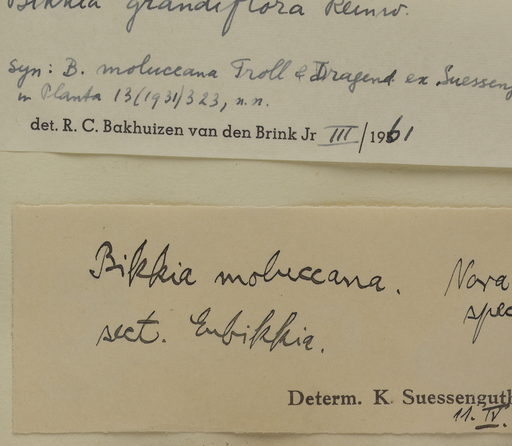 Bikkia grandiflora Reinw.
syn: B. moluccana Troll & Dragend. ex Suesseng
in Planta 13/1931/323, n.n.
det. R. C. Bakhuizen van den Brink Jr III/1961
Bikkia moluccana. Nova
sect. Eubikkia. spec
Determ. K. Suessenguth
11. IV.